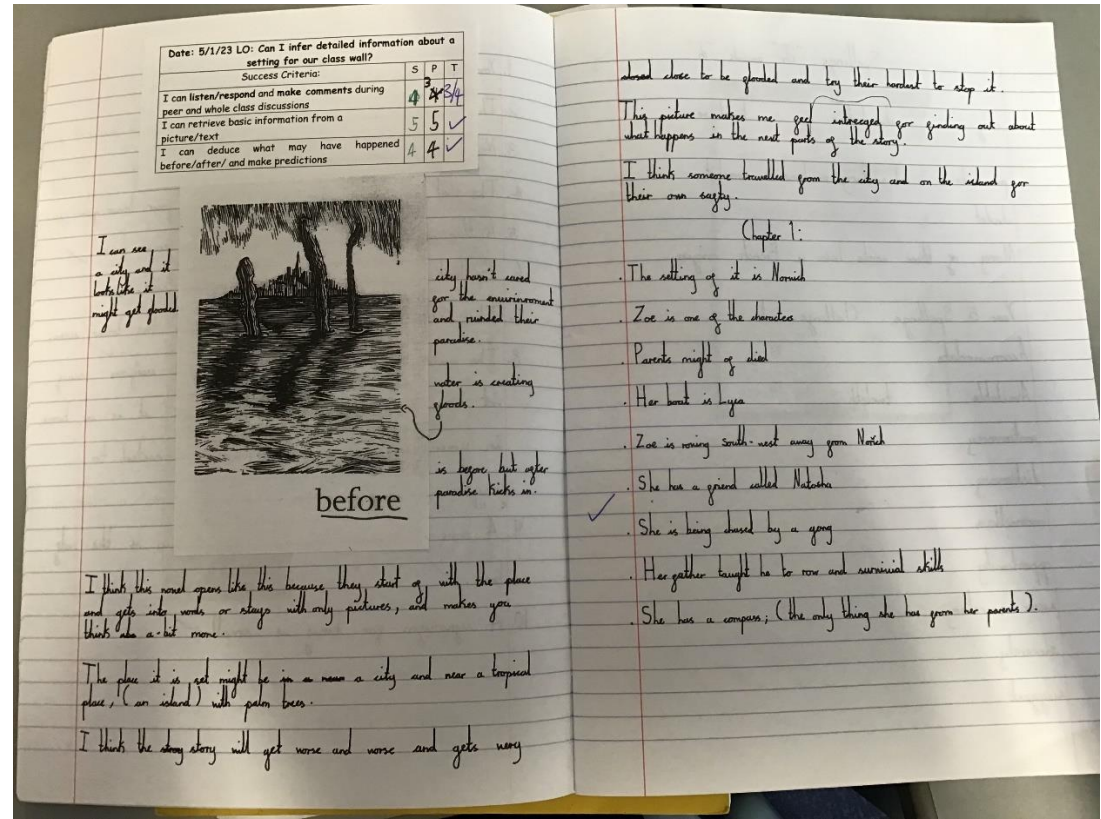 Date: 5/1/23 LO: Can I infer detailed information about a
setting for our class wall?
Success Criteria: S P T
I can listen/respond and make comments during
peer and whole class discussions 4 3 3/4
I can retrieve basic information from a
picture/text 5 5 ✓
I can deduce what may have happened
before/after/ and make predictions 4 4 ✓
I can see
a city and it
looks like it
might get flooded
city hasn't cared
for the enviurinroment
and ruinded their
paradise.
water is creating
floods.
is before but after
paradise kicks in.
before
I think this novel opens like this because they start of with the place
and gets into words or stays with only pictures, and makes you
think a-bit more.
The place it is set might be a city and near a tropical
place, (an island) with palm trees.
I think the story will get worse and worse and gets very
close to be flooded and try their hardest to stop it.
This picture makes me feel intreeged for finding out about
what happens in the next parts of the story.
I think someone travelled from the city and on the island for
their own safty.
Chapter 1:
. The setting of it is Norwich
. Zoe is one of the characters
. Parents might of died
. Her boat is Lyca
. Zoe is rowing south-west away from
. She has a friend called Natasha
✓
. She is being chased by a gang
. Her father taught he to row and survivial skills
. She has a compass; (the only thing she has from her parents).